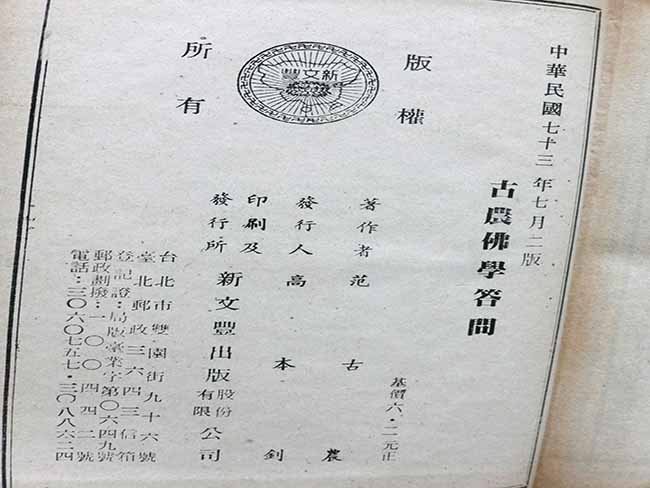 中華民國七十三年七月二版
古農佛學答問
版權
所有
新文豐
基價六・二元正
著作者 范古農
發行人 高本釗
印刷及
發行所 新文豐出版股份有限公司
台北市雙園街九十六號
臺北郵政三六四三信箱
登記證：局版臺業字第〇六四九號
郵政劃撥：一〇〇四四二號
電話：三〇六〇七五七・三〇八八六二四